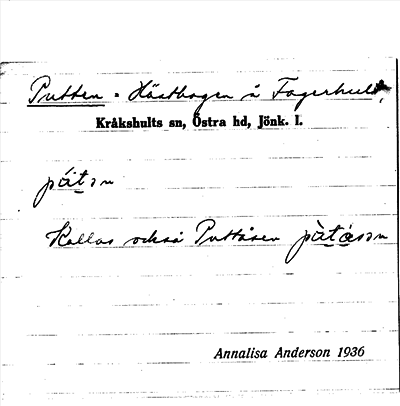 Putten = Hästhagen å Fagerhult,
Kråkshults sn, Östra hd, Jönk. l.
pút̠ən
Kallas också Puttåsen
Annalisa Anderson 1936